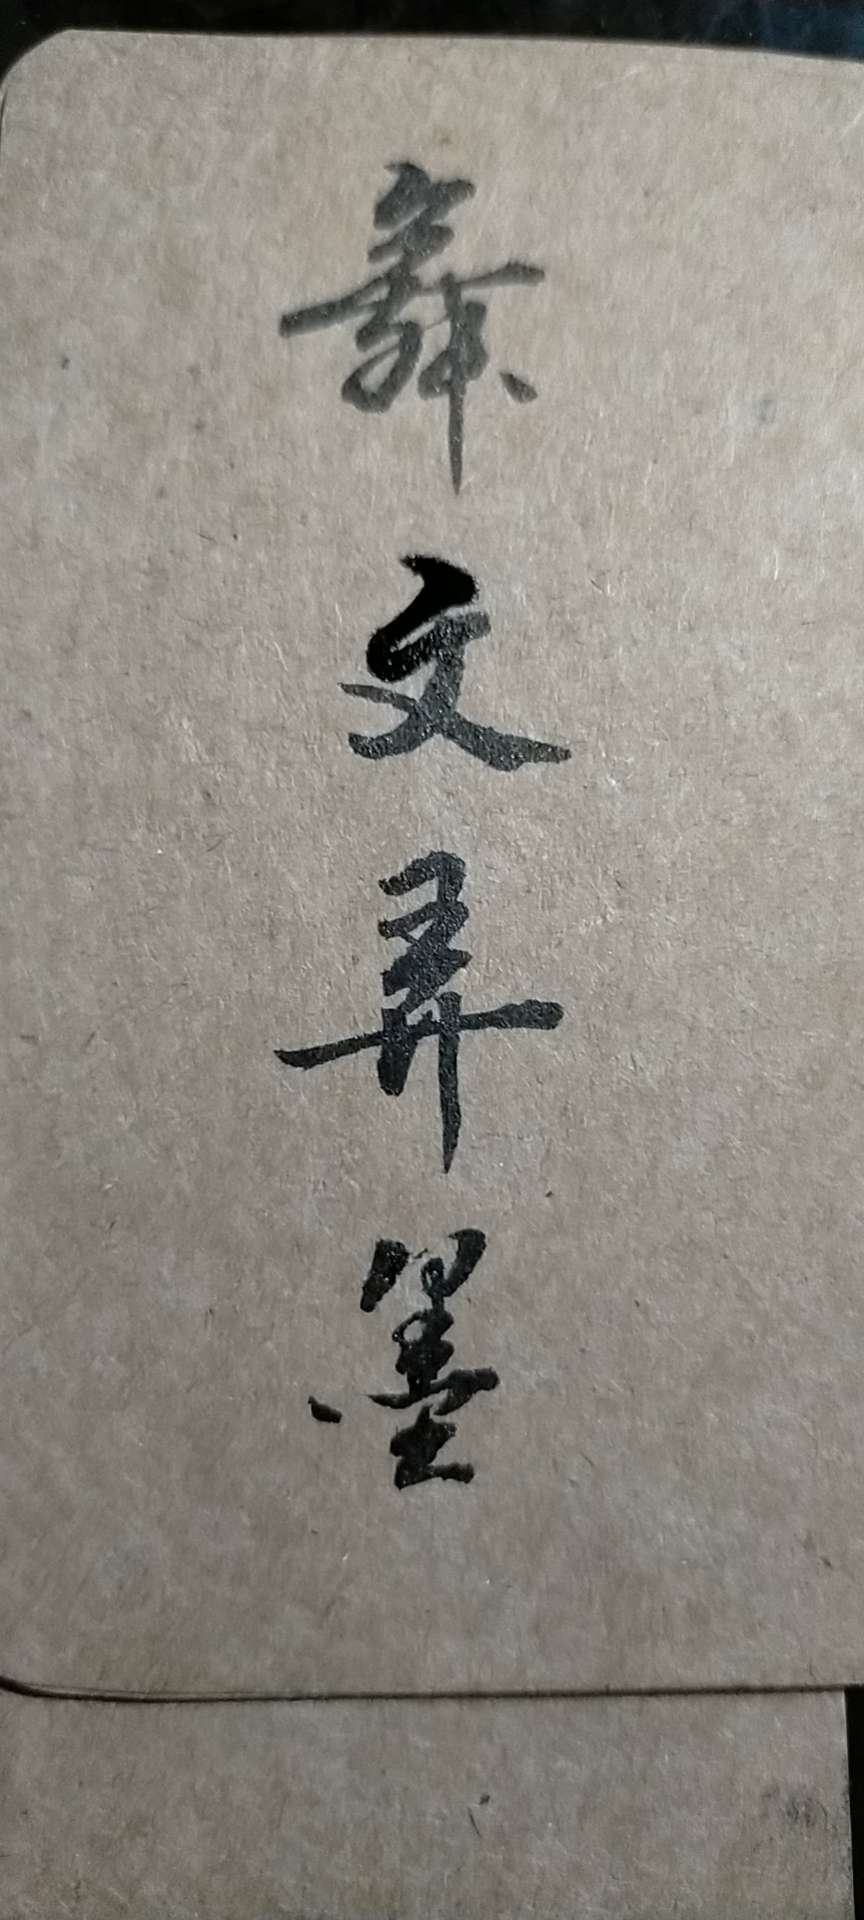 舞文弄墨